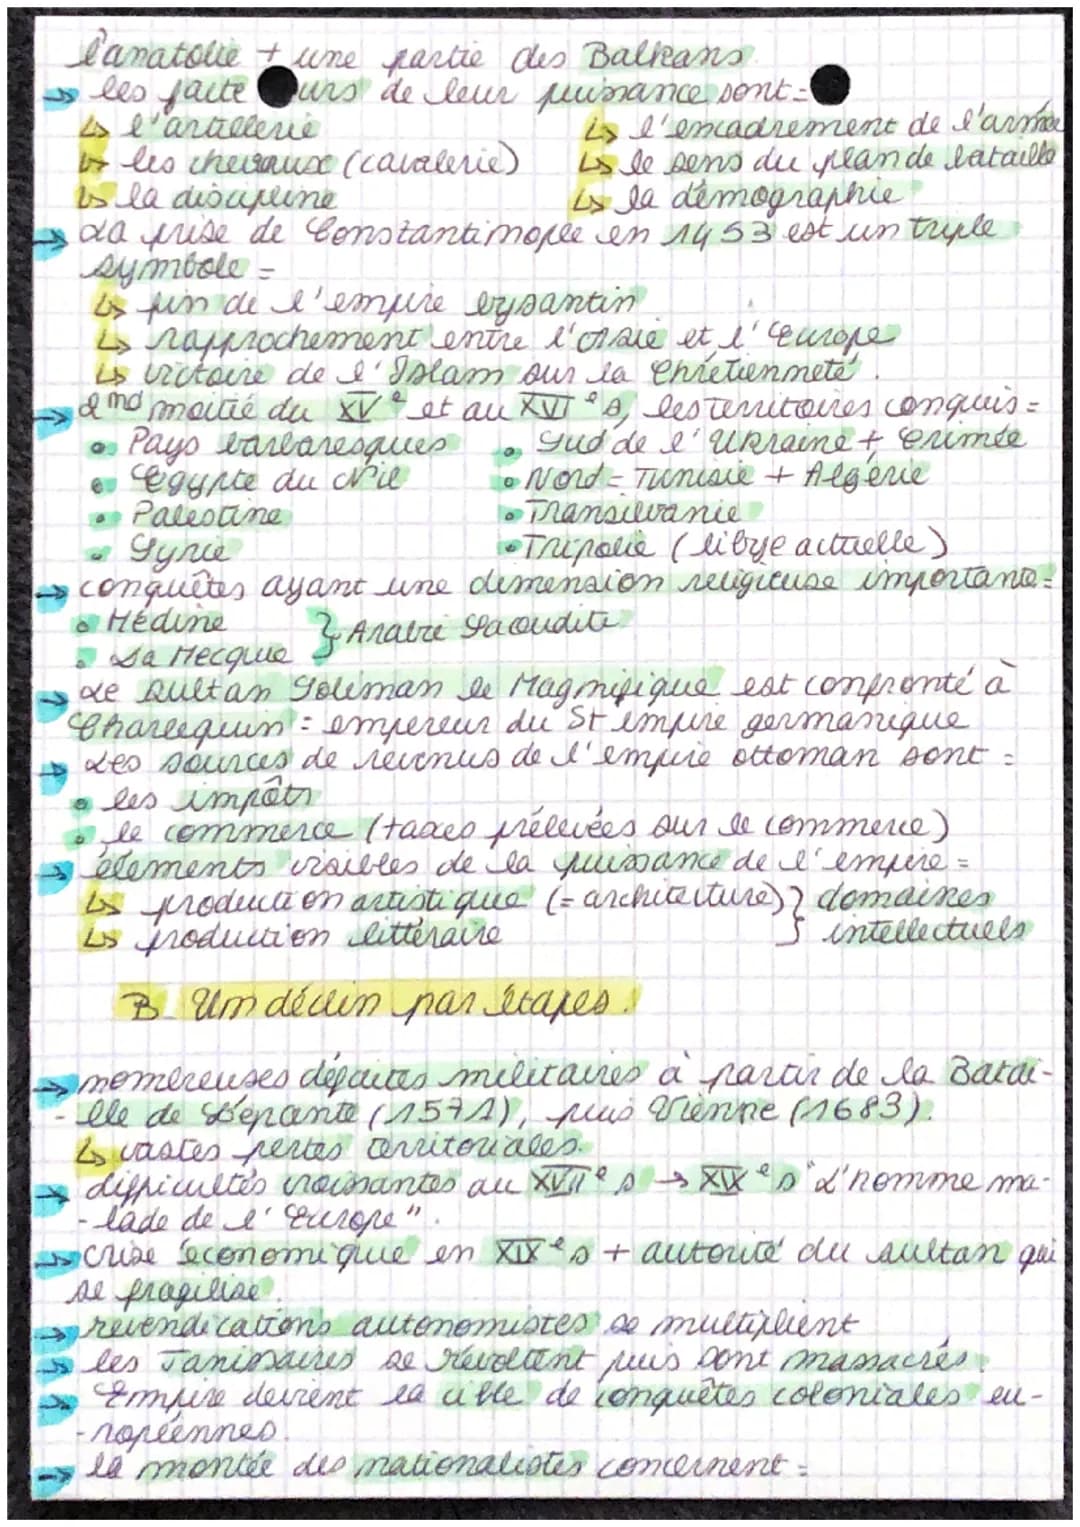 l'anatolie + une partie des Balkans.
→ les facteurs de leur puissance sont =
↳ l'artillerie ↳ l'encadrement de l'armée
↳ les chevaux (cavalerie) ↳ le sens du plan de bataille
↳ la discipline ↳ la démographie
→ La prise de Constantinople en 1453 est un triple
symbole =
↳ fin de l'empire bysantin
↳ rapprochement entre l'Asie et l'Europe
↳ victoire de l'Islam sur la Chrétienneté.
→ 2nd moitié du XVe et au XVIe s, les territoires conquis =
• Pays barbaresques • Sud de l'Ukraine + Crimée
• Egypte du Nil • Nord = Tunisie + Algérie
• Palestine • Transilvanie
• Syrie • Tripolie (libye actuelle)
→ conquêtes ayant une dimension religieuse importante =
• Médine } Arabie Saoudite
• La Mecque
→ Le sultan Soliman le Magnifique est confronté à
Charlequin = empereur du St empire germanique
→ Les sources de revenus de l'empire ottoman sont =
• les impôts
• le commerce (taxes prélevées sur le commerce)
→ élements visibles de la puissance de l'empire =
↳ production artistique (= architecture) } domaines
↳ production littéraire } intellectuels
B. Un déclin par étapes.
→ nombreuses défaites militaires à partir de la Batai-
-lle de Lépante (1571), puis Vienne (1683).
↳ vastes pertes territoriales.
→ difficultés croissantes au XVIIe s → XIXe s "L'homme ma-
-lade de l'Europe".
→ crise économique en XIXe s + autorité du sultan qui
se fragilise.
→ revendications autonomistes se multiplient
→ les Janissaires se révoltent puis sont massacrés.
→ Empire devient la cible de conquêtes coloniales eu-
-ropéennes.
→ la montée des nationalistes concernent =